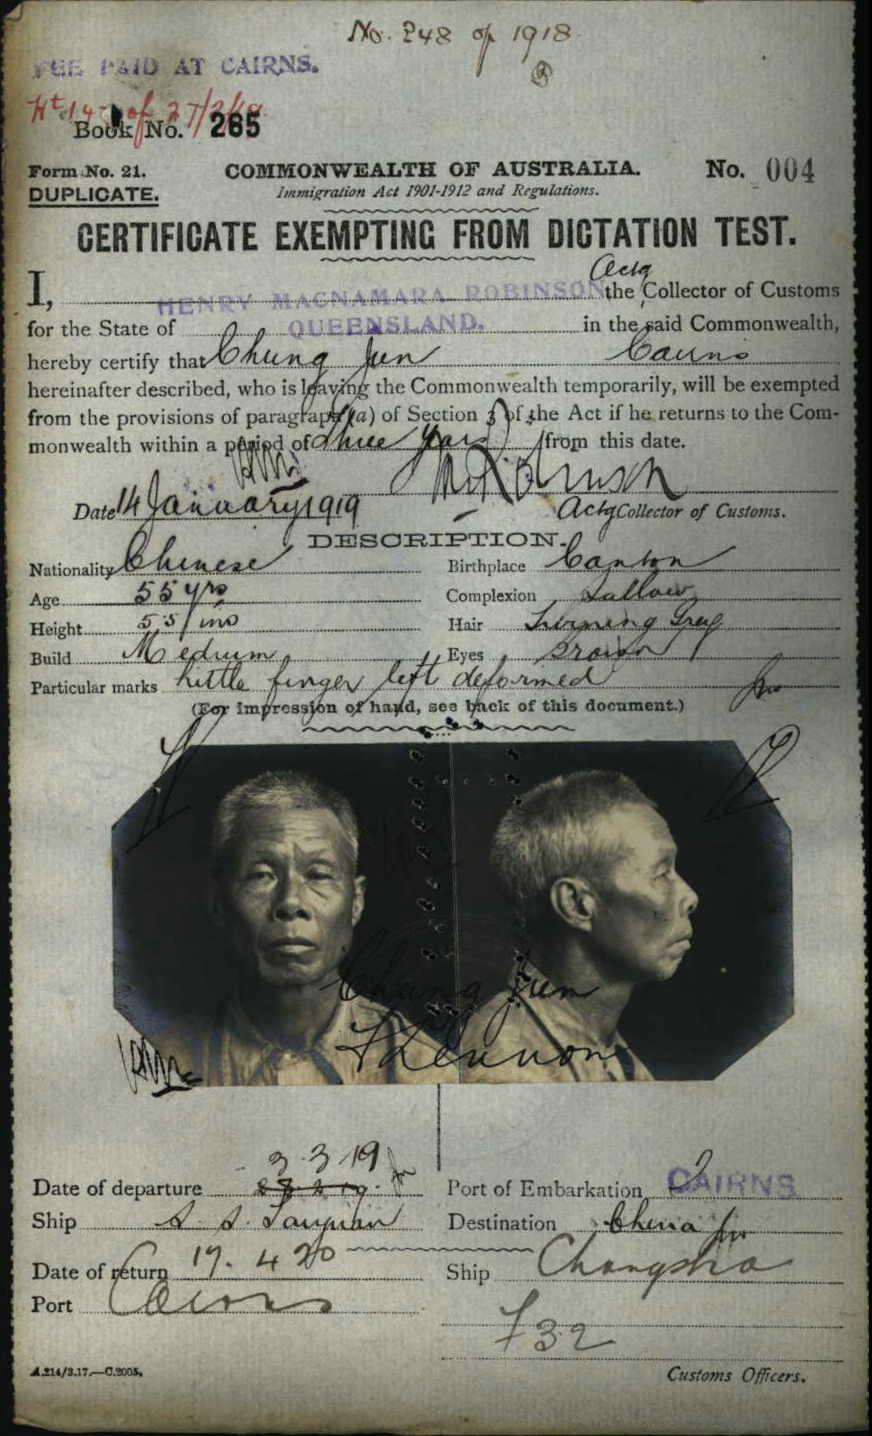 No. 248 of 1918
FEE PAID AT CAIRNS.
Book No. 265
Form No. 21. COMMONWEALTH OF AUSTRALIA. No. 004
DUPLICATE. Immigration Act 1901-1912 and Regulations.
CERTIFICATE EXEMPTING FROM DICTATION TEST.
Actg
I, HENRY MACNAMARA ROBINSON the Collector of Customs
for the State of QUEENSLAND. in the said Commonwealth,
hereby certify that Chung Jun Cairns
hereinafter described, who is leaving the Commonwealth temporarily, will be exempted
from the provisions of paragraph (a) of Section 3 of the Act if he returns to the Com-
monwealth within a period of three years from this date.
Date 14 January 1919 Actg Collector of Customs.
DESCRIPTION.
Nationality Chinese Birthplace Canton
Age 55 yrs Complexion Sallow
Height 5 5½ ins Hair Turning Grey
Build Medium Eyes Brown
Particular marks Little finger left deformed
(For impression of hand, see back of this document.)
Chung Jun
3.3.19
Date of departure Port of Embarkation CAIRNS
Ship S. S. Taiyuan Destination China
Date of return 17. 4 20 Ship Changsha
Port Cairns
F32
A.214/3.17.—C.2005. Customs Officers.